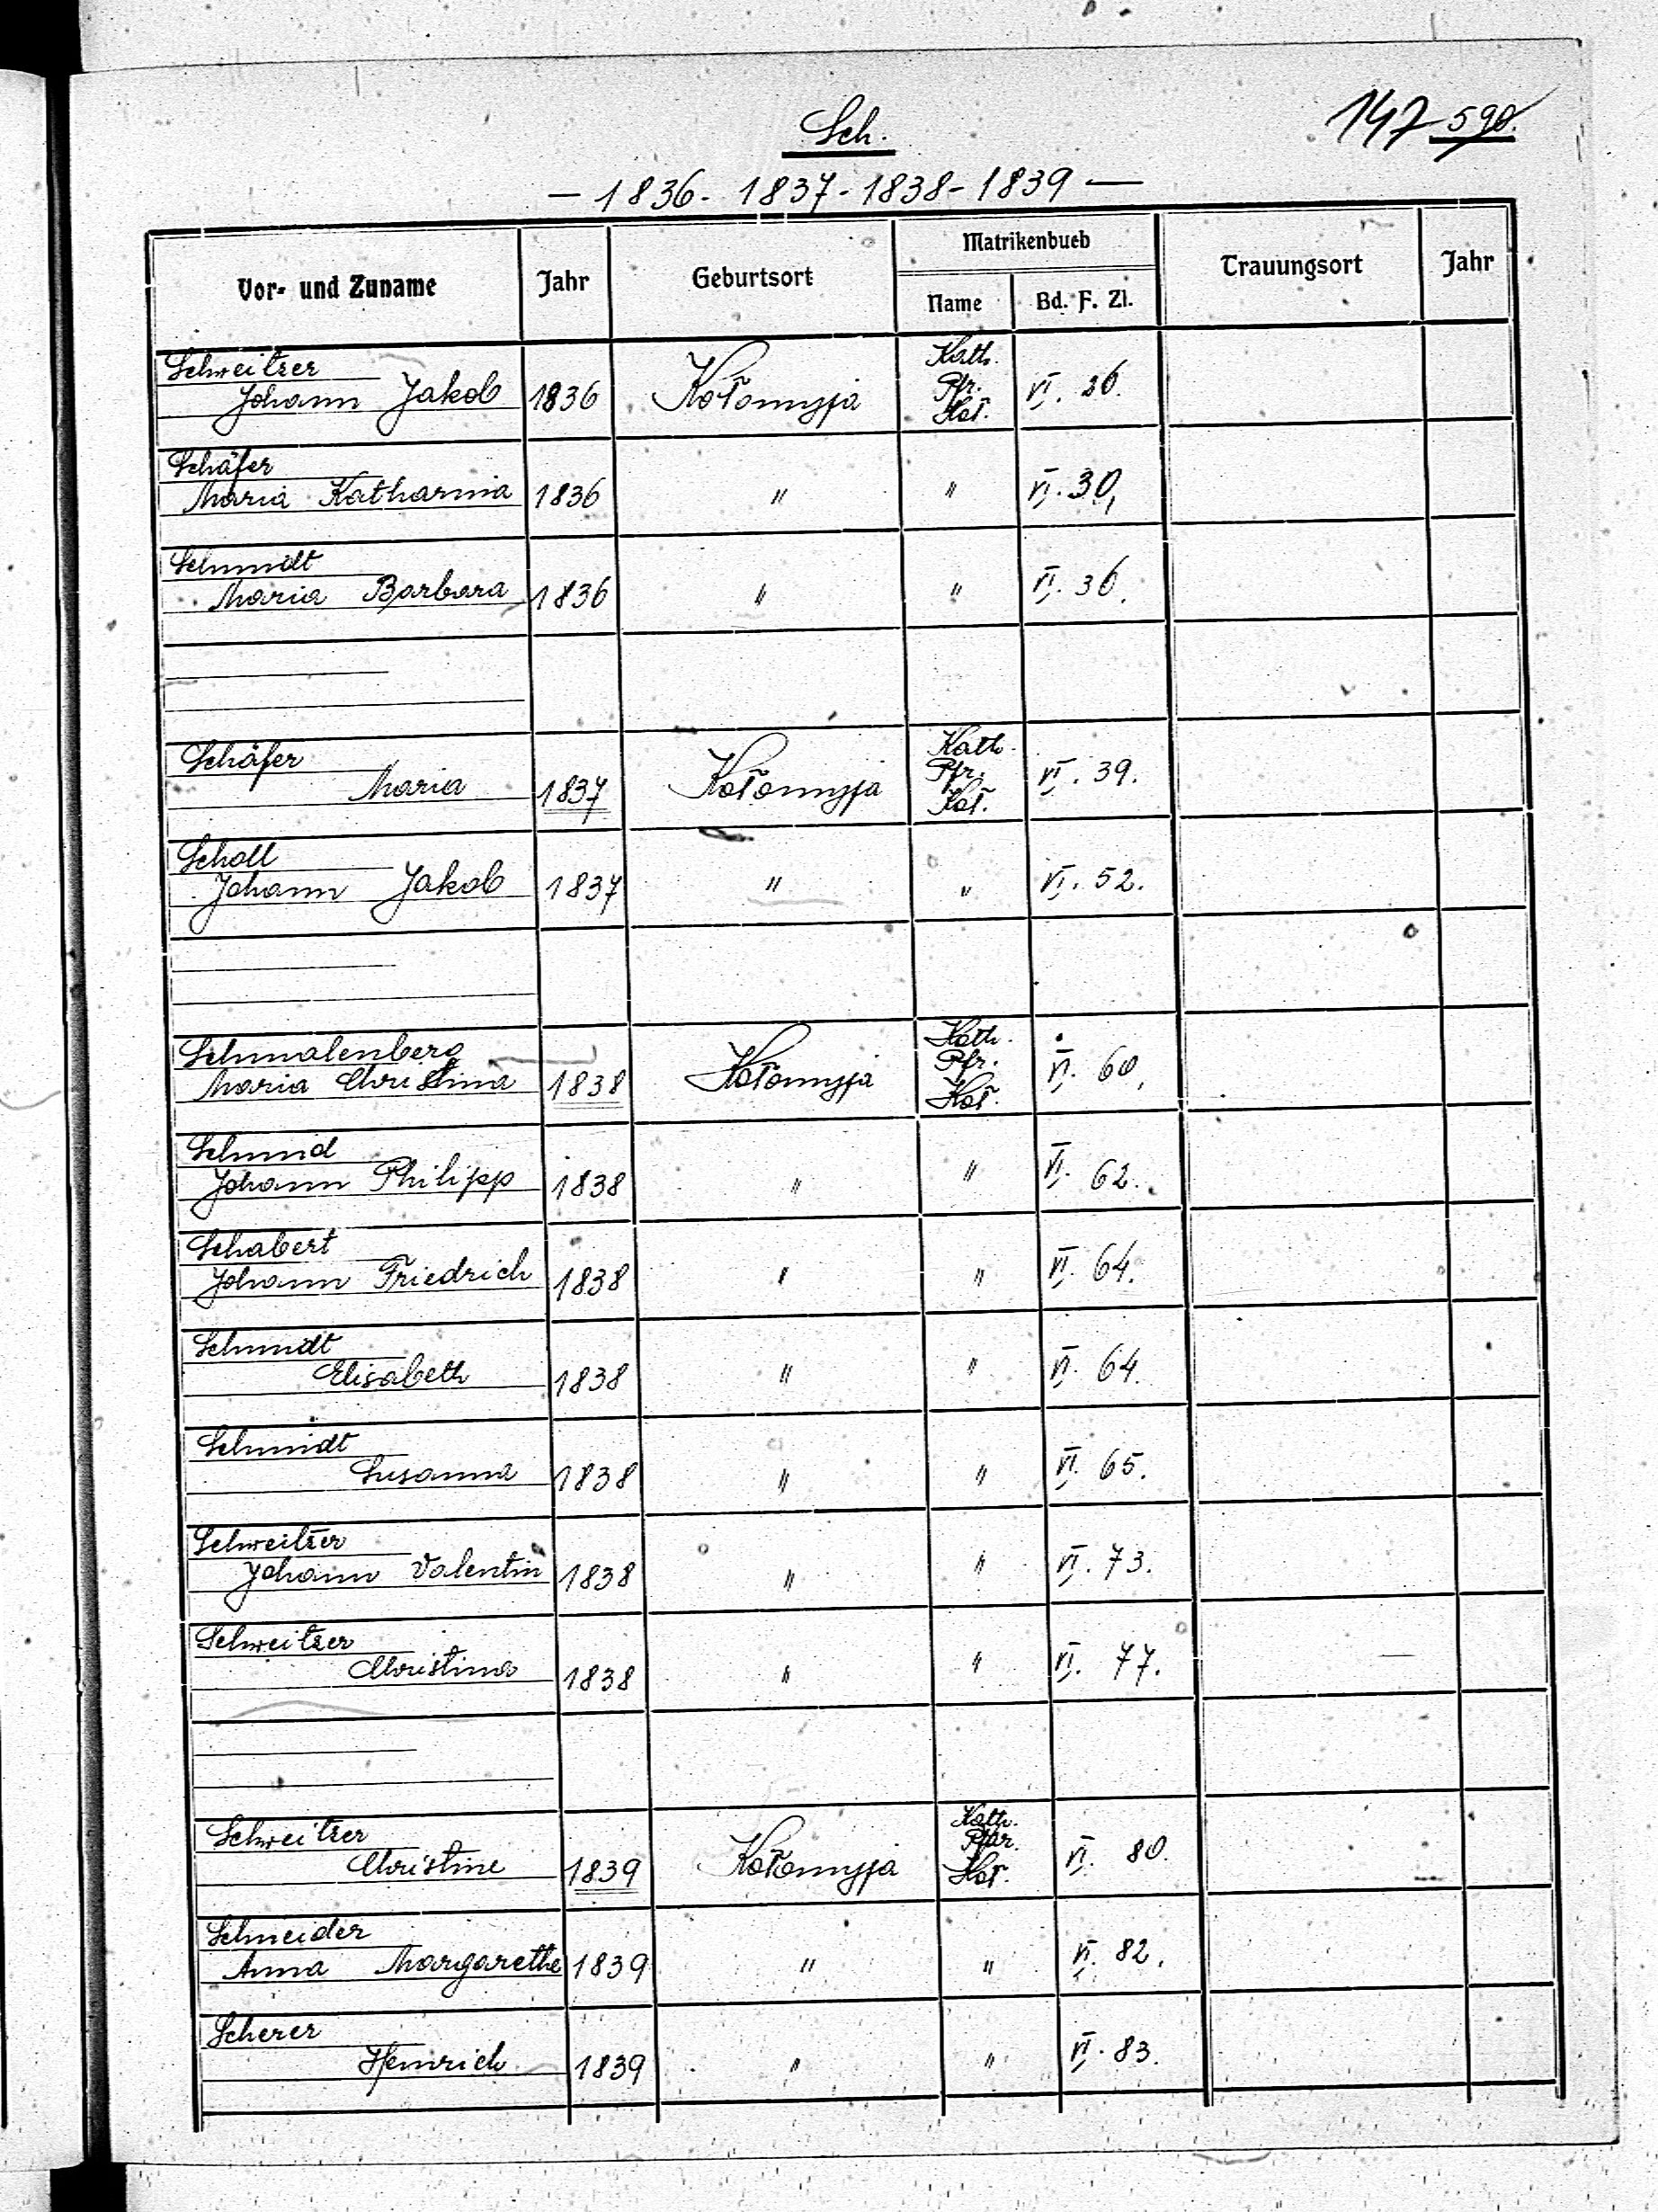 Sch.
147 590.
— 1836 - 1837 - 1838 - 1839 —
Vor- und Zuname Jahr Geburtsort Matrikenbueb Trauungsort Jahr
Name Bd. F. Zl.
Schweitzer
Johann Jakob 1836 Kołomyja Kath. Pfr. Koł. VI. 26.
Schäfer
Maria Katharina 1836 " " VI. 30,
Schmidt
Maria Barbara 1836 " " VI. 36.
Schäfer
Maria 1837 Kołomyja Kath. Pfr. Koł. VI. 39.
Scholl
Johann Jakob 1837 " " VI. 52.
Schmalenberg
Maria Christina 1838 Kołomyja Kath. Pfr. Koł. VI. 60,
Schmid
Johann Philipp 1838 " " VI. 62.
Schabert
Johann Friedrich 1838 " " VI. 64.
Schmidt
Elisabeth 1838 " " VI. 64.
Schmidt
Susanna 1838 " " VI. 65.
Schweitzer
Johann Valentin 1838 " " VI. 73.
Schweitzer
Christina 1838 " " VI. 77.
Schweitzer
Christine 1839 Kołomyja Kath. Pfar. Koł. VI. 80.
Schneider
Anna Margarethe 1839 " " VI. 82.
Scherer
Heinrich 1839 " " VI. 83.